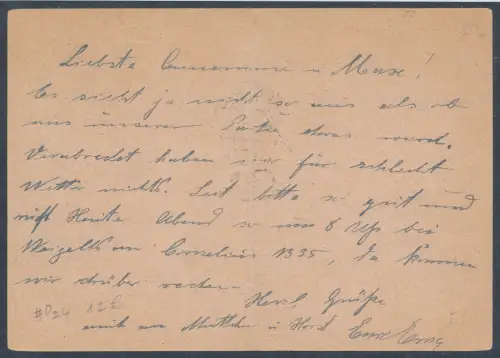 Liebste Annemarie u Max!
Es sieht ja nicht so aus als ob
aus unserer etwas wird.
Verabredet haben wir für schlecht
Wetter nichts. Seit bitte so gut und
ruft Heute Abend so um 8 Uhr bei
Weigelts an Cornelius 1335, da können
wir drüber reden.
Herzl. Grüße
auch an Muttchen u Horst
#D24 12€